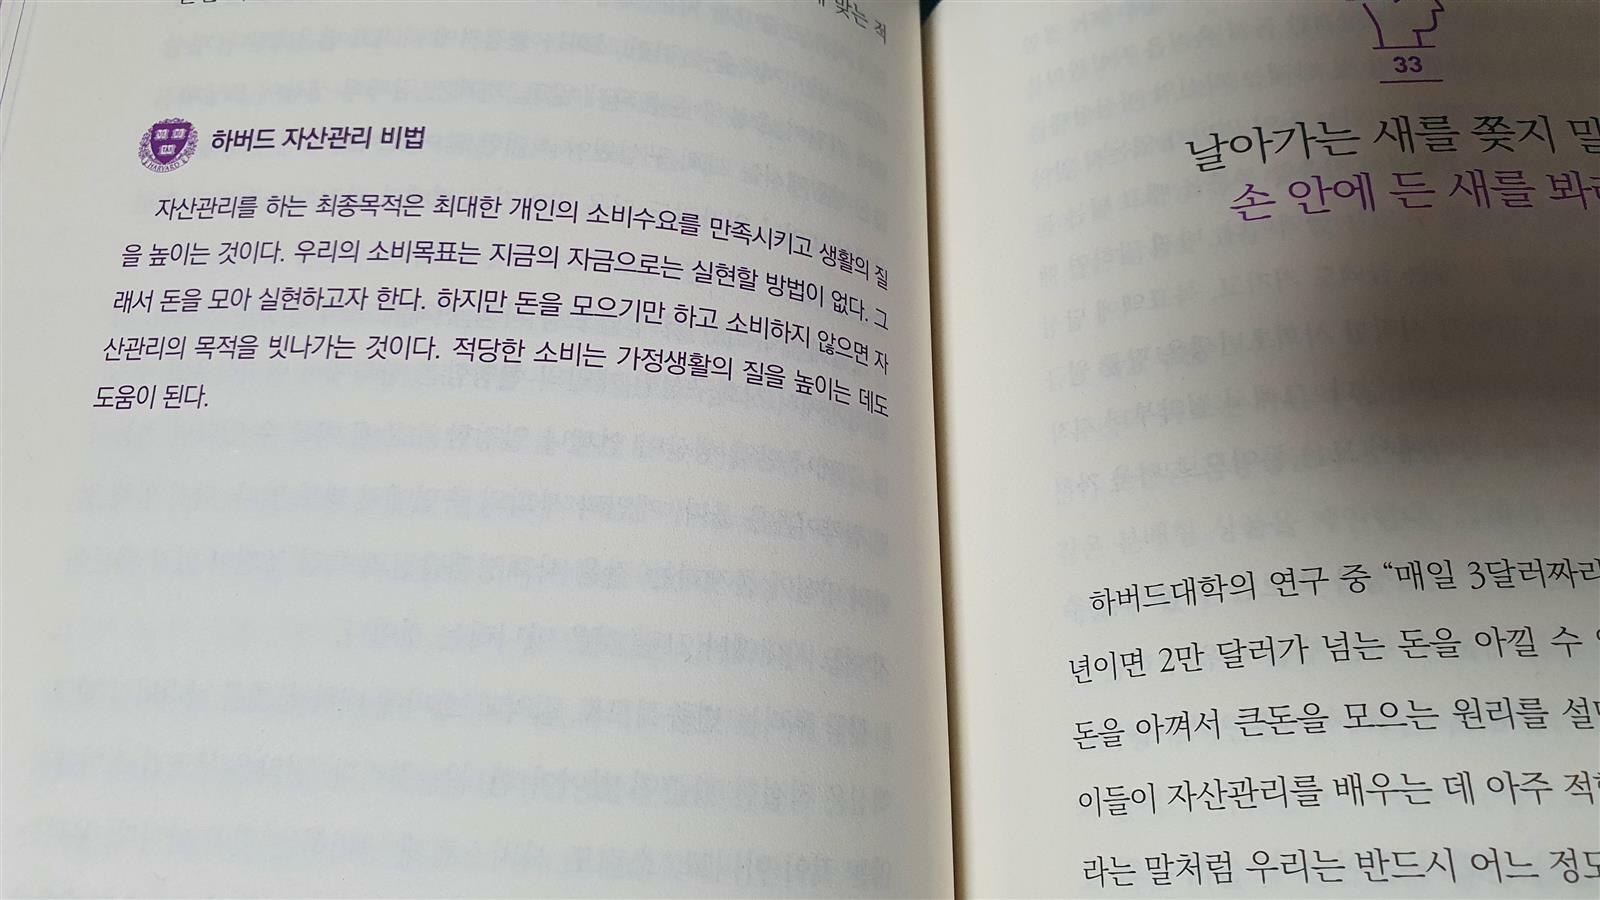 맞는 적
하버드 자산관리 비법
자산관리를 하는 최종목적은 최대한 개인의 소비수요를 만족시키고 생활의 질
을 높이는 것이다. 우리의 소비목표는 지금의 자금으로는 실현할 방법이 없다. 그
래서 돈을 모아 실현하고자 한다. 하지만 돈을 모으기만 하고 소비하지 않으면 자
산관리의 목적을 빗나가는 것이다. 적당한 소비는 가정생활의 질을 높이는 데도
도움이 된다.
33
날아가는 새를 쫓지 말
손 안에 든 새를 봐라
하버드대학의 연구 중 “매일 3달러짜리
년이면 2만 달러가 넘는 돈을 아낄 수
돈을 아껴서 큰돈을 모으는 원리를 설명
이들이 자산관리를 배우는 데 아주 적합
라는 말처럼 우리는 반드시 어느 정도